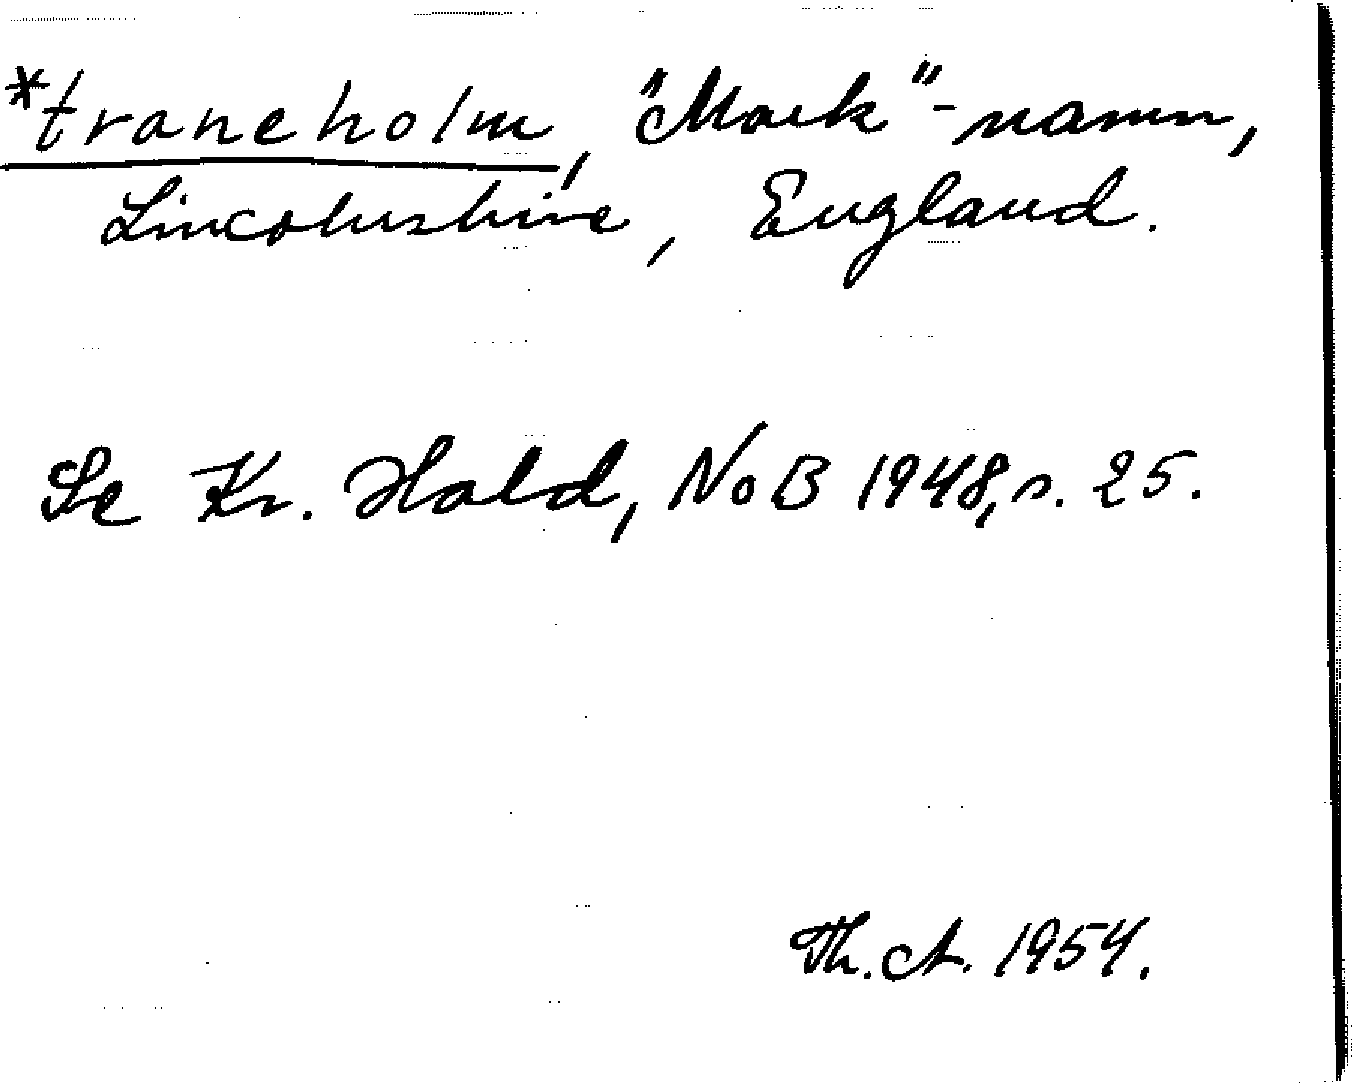 *traneholm, "Mark"-namn,
Lincolnshire, England.
Se Kr. Hald, NoB 1948, s. 25.
Th. A. 1954.